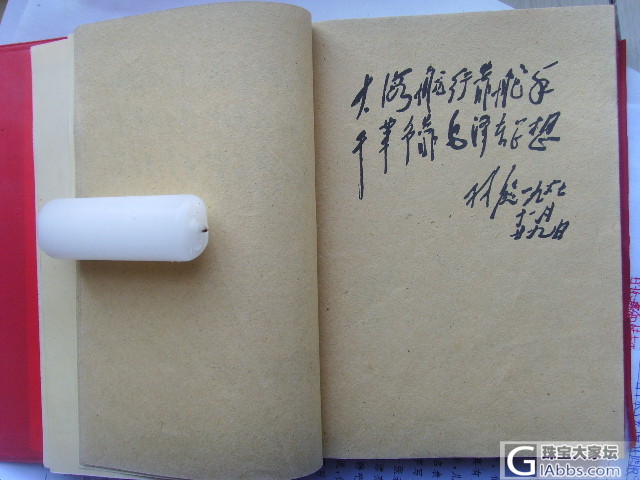 大海航行靠舵手
干革命靠毛泽东思想
林彪 一九六七
十一月
廿九日
珠宝大家坛
GIabbs.com